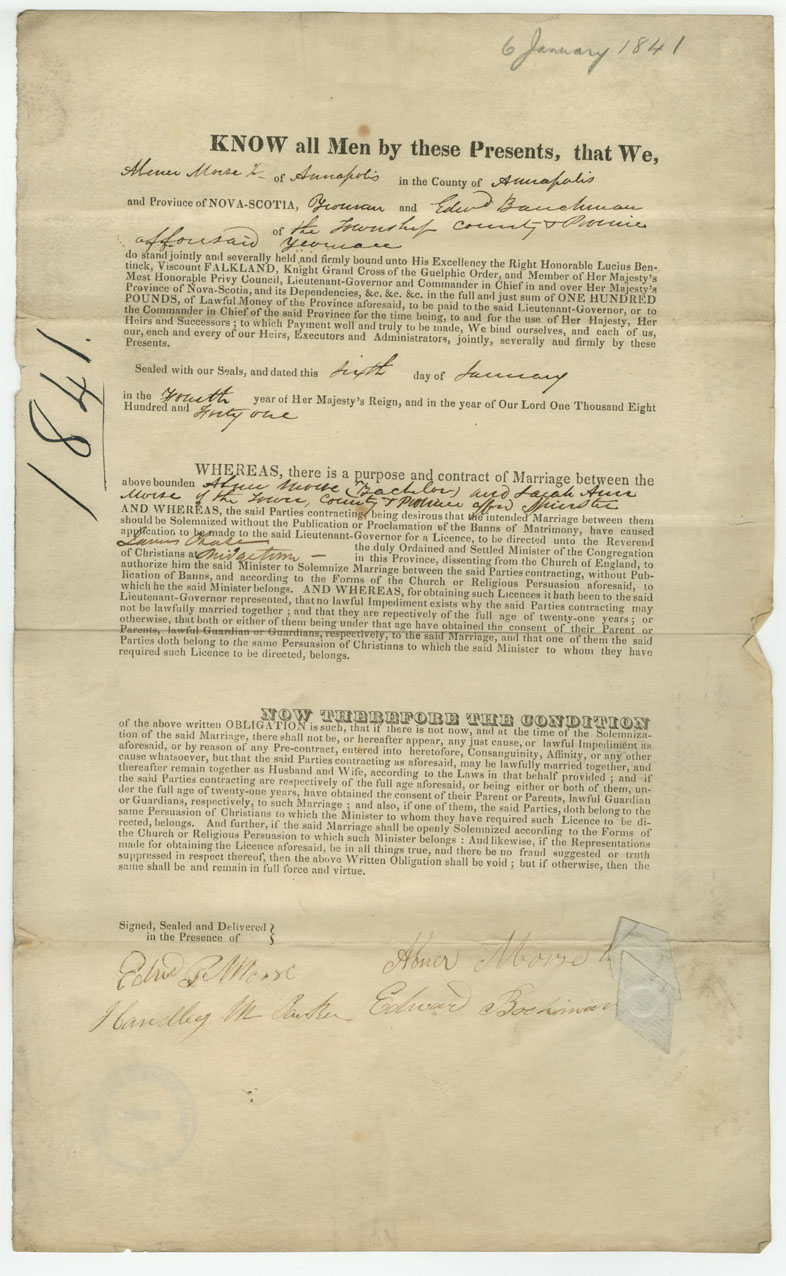 6 January 1841
KNOW all Men by these Presents, that We,
Abner Morse of Annapolis in the County of Annapolis
and Province of NOVA-SCOTIA, Yeoman and Edwd Bauchman
of the Township County & Province
afforsaid Yeoman
do stand jointly and severally held and firmly bound unto His Excellency the Right Honorable Lucius Ben-
tinck, Viscount FALKLAND, Knight Grand Cross of the Guelphic Order, and Member of Her Majesty's
Most Honorable Privy Council, Lieutenant-Governor and Commander in Chief in and over Her Majesty's
Province of Nova-Scotia, and its Dependencies, &c. &c. &c. in the full and just sum of ONE HUNDRED
POUNDS, of Lawful Money of the Province aforesaid, to be paid to the said Lieutenant-Governor, or to
the Commander in Chief of the said Province for the time being, to and for the use of Her Hajesty, Her
Heirs and Successors; to which Payment well and truly to be made, We bind ourselves, and each of us,
our, each and every of our Heirs, Executors and Administrators, jointly, severally and firmly by these
Presents.
Sealed with our Seals, and dated this sixth day of January
in the Fourth year of Her Majesty's Reign, and in the year of Our Lord One Thousand Eight
Hundred and Forty one
1841.
WHEREAS, there is a purpose and contract of Marriage between the
above bounden Abner Morse (Bachelor) and Sarah Ann
Morse of the Town, County & Province afforsd Spinster
AND WHEREAS, the said Parties contracting being desirous that the intended Marriage between them
should be Solemnized without the Publication or Proclamation of the Banns of Matrimony, have caused
application to be made to the said Lieutenant-Governor for a Licence, to be directed unto the Reverend
Chase the duly Ordained and Settled Minister of the Congregation
of Christians at Bridgetown - in this Province, dissenting from the Church of England, to
authorize him the said Minister to Solemnize Marriage between the said Parties contracting, without Pub-
lication of Banns, and according to the Forms of the Church or Religious Persuasion aforesaid, to
which he the said Minister belongs. AND WHEREAS, for obtaining such Licences it hath been to the said
Lieutenant-Governor represented, that no lawful Impediment exists why the said Parties contracting may
not be lawfully married together; and that they are repectively of the full age of twenty-one years; or
otherwise, that both or either of them being under that age have obtained the consent of their Parent or
Parents, lawful Guardian or Guardians, respectively, to the said Marriage, and that one of them the said
Parties doth belong to the same Persuasion of Christians to which the said Minister to whom they have
required such Licence to be directed, belongs.
NOW THEREFORE THE CONDITION
of the above written OBLIGATION is such, that if there is not now, and at the time of the Solemniza-
tion of the said Marriage, there shall not be, or hereafter appear, any just cause, or lawful Impediment as
aforesaid, or by reason of any Pre-contract, entered into heretofore, Consanguinity, Affinity, or any other
cause whatsoever, but that the said Parties contracting as aforesaid, may be lawfully married together, and
thereafter remain together as Husband and Wife, according to the Laws in that behalf provided; and if
the said Parties contracting are respectively of the full age aforesaid, or being either or both of them, un-
der the full age of twenty-one years, have obtained the consent of their Parent or Parents, lawful Guardian
or Guardians, respectively, to such Marriage; and also, if one of them, the said Parties, doth belong to the
same Persuasion of Christians to which the Minister to whom they have required such Licence to be di-
rected, belongs. And further, if the said Marriage shall be openly Solemnized according to the Forms of
the Church or Religious Persuasion to which such Minister belongs: And likewise, if the Representations
made for obtaining the Licence aforesaid, be in all things true, and there be no fraud suggested or truth
suppressed in respect thereof, then the above Written Obligation shall be void; but if otherwise, then the
same shall be and remain in full force and virtue.
Signed, Sealed and Delivered
in the Presence of
Abner Morse
Edwd Morse
Edward Bochman
Handley M